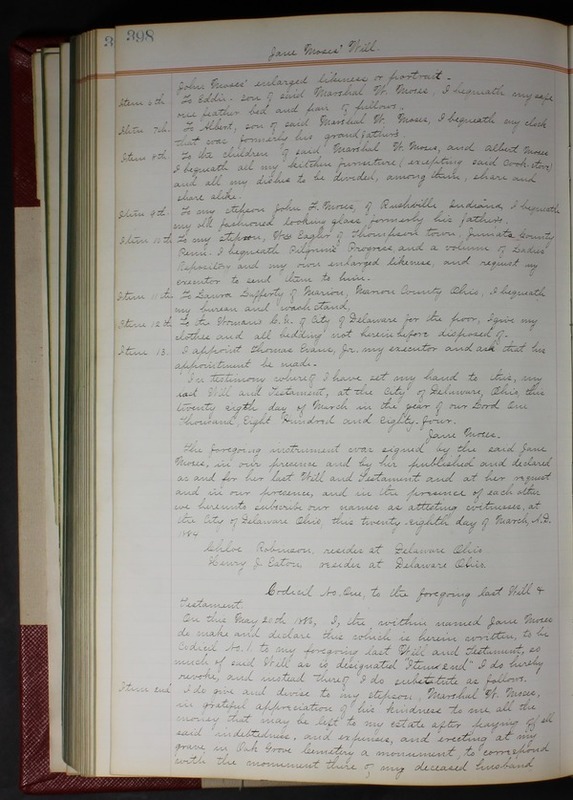 398
Jane Moses' Will.
John Moses' enlarged likeness or portrait.
Item 6th To Eddie, son of said Marshal W. Moses, I bequeath my safe
one feather bed and pair of pillows.
Item 7th. To Albert, son of said Marshal W. Moses, I bequeath my clock
that was formerly his grandfathers.
Item 8th. To the children of said Marshal W. Moses, and Albert Moses
I bequeath all my kitchen furniture (excepting said Cook stove)
and all my dishes to be divided, among them, share and
share alike.
Item 9th. To my stepson John F. Moses, of Rushville Indiana, I bequeath
my old fashioned looking glass formerly his fathers.
Item 10th To my stepson, Wm Eagler of Thompson town Juniata County
Penn. I bequeath Pilgrims Progress and a volume of Ladies
Repository and my own enlarged likeness, and request my
executor to send them to him.
Item 11th. To Laura Dufferty of Marion, Marion County Ohio, I bequeath
my bureau and wash stand,
Item 12th. To the Womans C. U. of City of Delaware for the poor, I give my
clothes and all bedding not hereinbefore disposed of.
Item 13. I appoint Thomas Evans, Jr. my executor and ask that his
appointment be made.
In testimony whereof I have set my hand to this, my
said Will and Testament, at the City of Delaware, Ohio, this
twenty eigth day of March in the year of our Lord One
Thousand, Eight Hundred and Eighty-four.
Jane Moses.
The foregoing instrument was signed by the said Jane
Moses, in our presence and by her published and declared
as and for her last Will and Testament and at her request
and in our presence, and in the presence of each other
we hereunto subscribe our names as attesting witnesses, at
the City of Delaware Ohio, this twenty-eighth day of March, A.D.
1884
Chloe Robinson, resides at Delaware Ohio
Henry J. Eaton, resides at Delaware Ohio.
Codicil No. One, to the foregoing last Will &
Testament
On this May 20th 1886, I, the within named Jane Moses
do make and declare this which is herein written, to be
Codicil No. 1. to my foregoing last Will and Testament, so
much of said Will as is designated "Item 2nd" I do hereby
revoke, and instead thereof I do substitute as follows.
Item 2nd I do give and devise to my stepson, Marshal W. Moses,
in grateful appreciation of his kindness to me all the
money that may be left to my estate after paying off all
said indebtedness, and expenses, and erecting at my
grave in Oak Grove Cemetery a monument, to correspond
with the monument there of my deceased husband